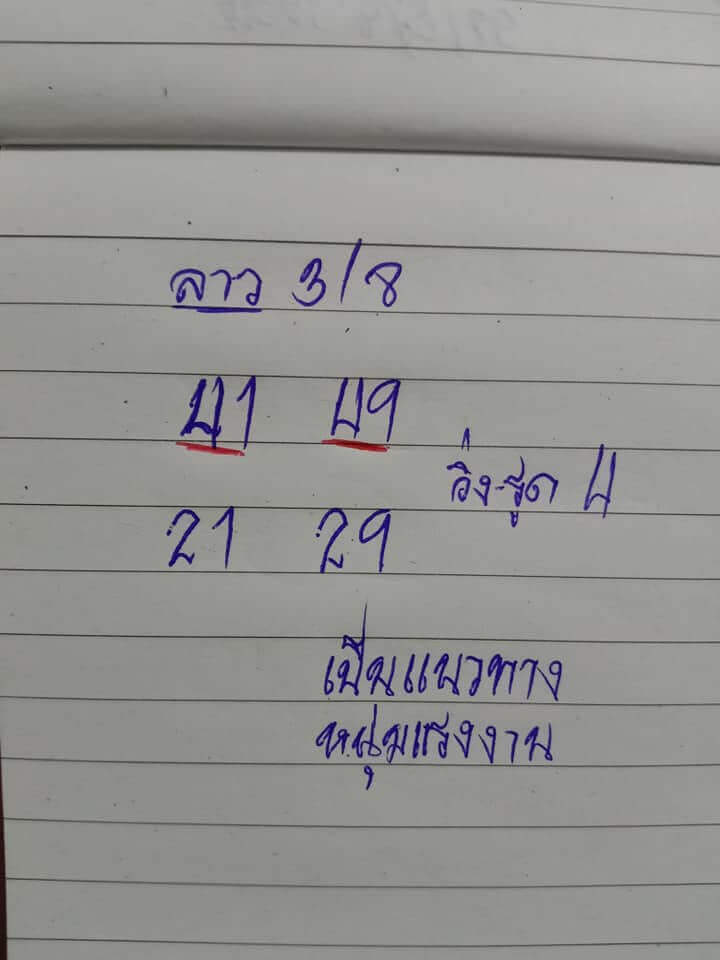 ลาว 3/8
41 49
วิ่ง-รูด 4
21 29
เป็นแนวทาง
หนุ่มแรงงาน